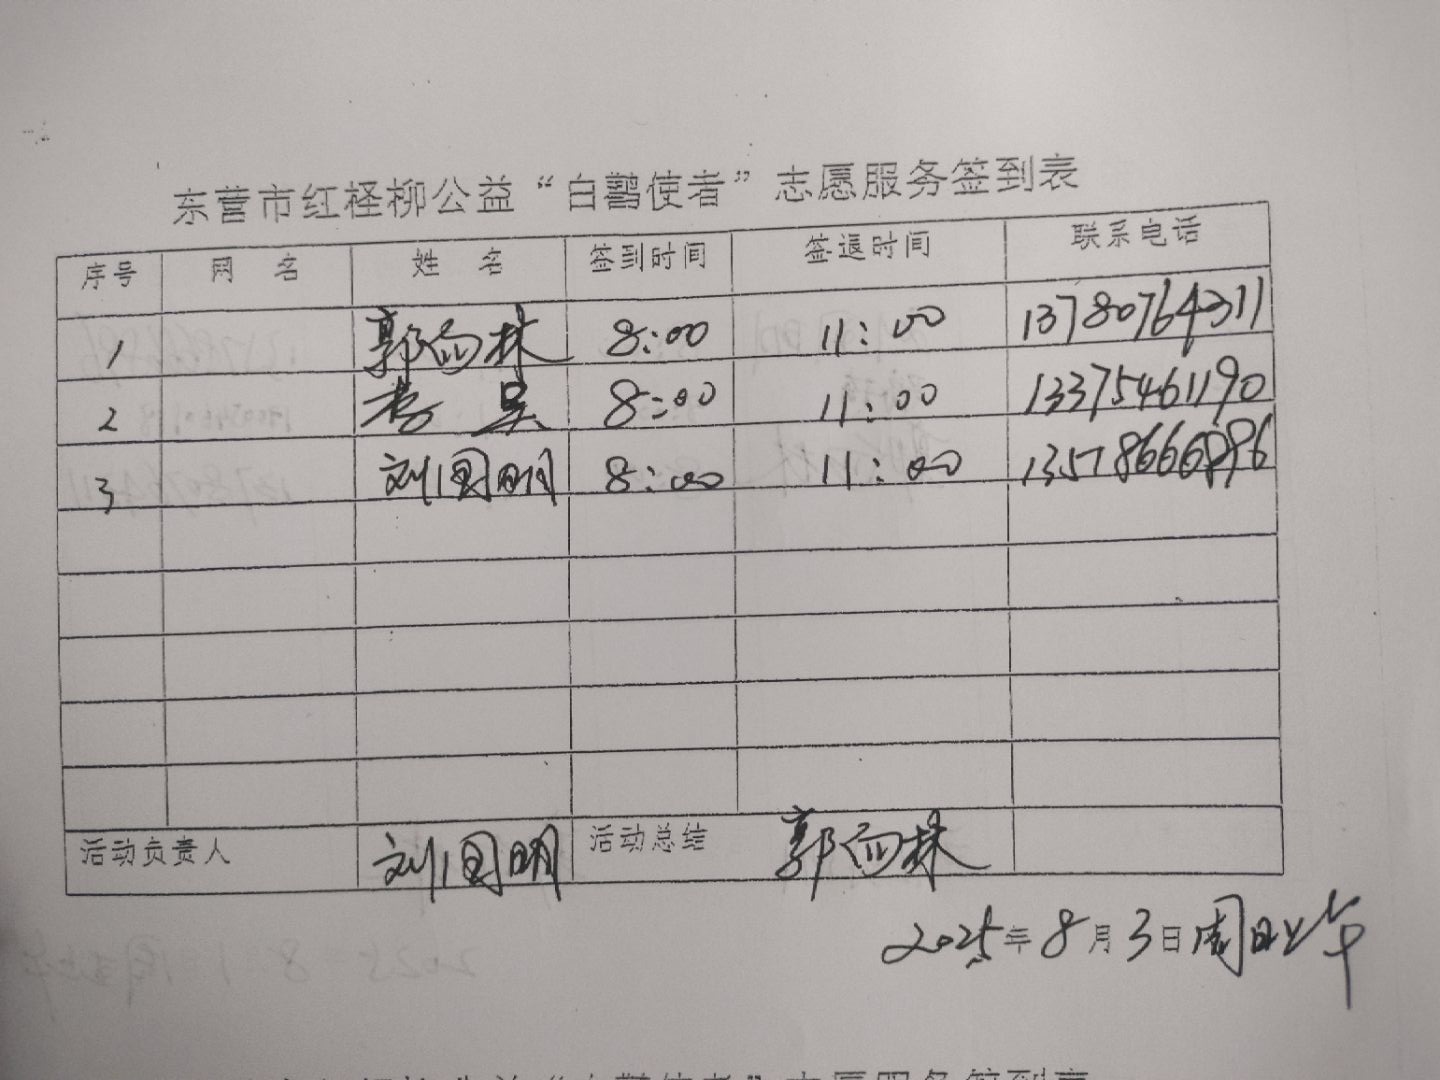 东营市红柽柳公益“白鹳使者”志愿服务签到表
序号 网 名 姓 名 签到时间 签退时间 联系电话
1 郭向林 8:00 11:00 13780764311
2 8:00 11:00 13375461190
3 刘国明 8:00 11:00
活动负责人 刘国明 活动总结 郭向林
2025年8月3日周日上午